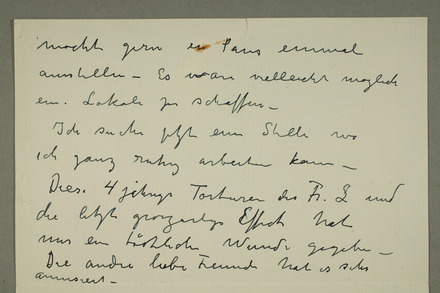 möchte gern in Paris einmal
ausstellen – Es wäre vielleicht möglich
ein Lokal zu schaffen –
Ich suche jetzt eine Stelle wo
ich ganz ruhig arbeiten kann –
Diese 4 jährige Torturen des Fr. L und
die letzte grossartige Effect hat
mir ein tödtliche Wunde gegeben –
Die andre liebe Freunde hat es sehr
amüsiert –